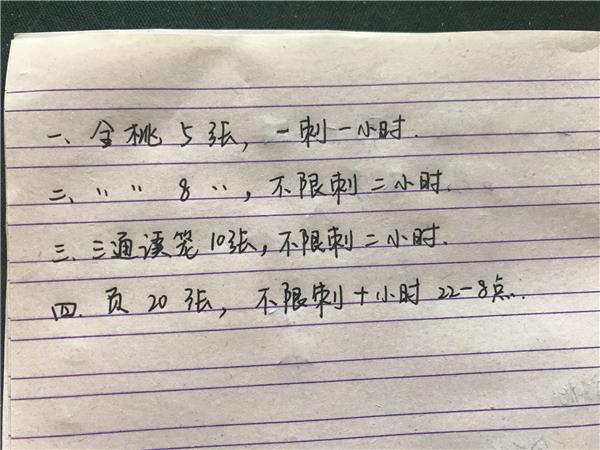 一、全桃 5 张, 一刺一小时.
二、〃 〃 8 〃, 不限刺二小时.
三、三通漠笼10张, 不限刺二小时.
四. 页 20 张, 不限刺十小时 22-8点.